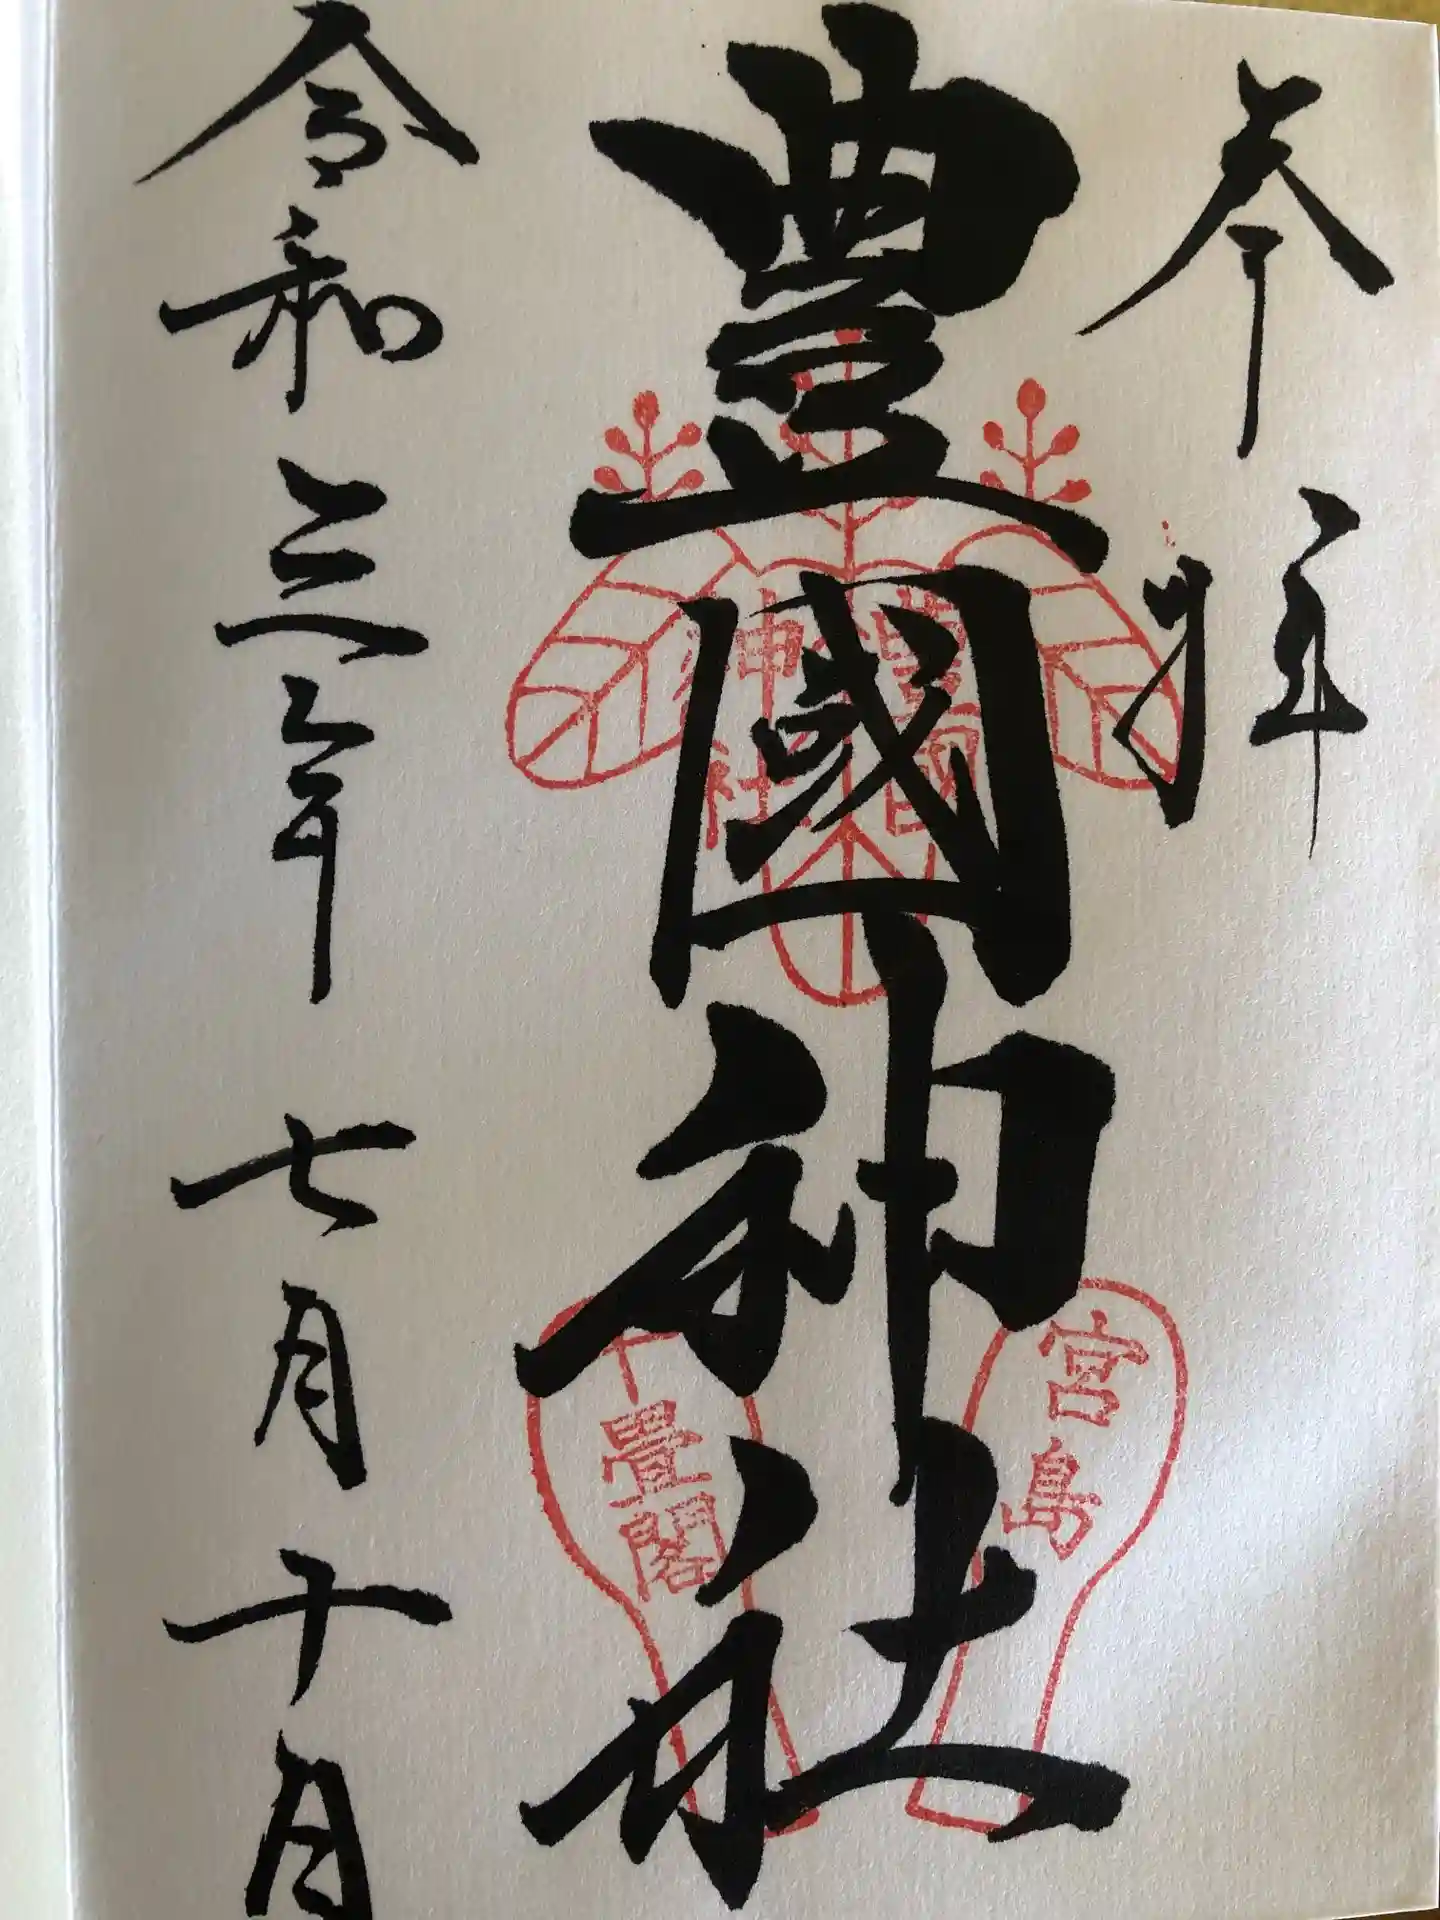 奉拝
豊國神社
豊國
神社
宮島
千畳閣
令和三年 七月十日